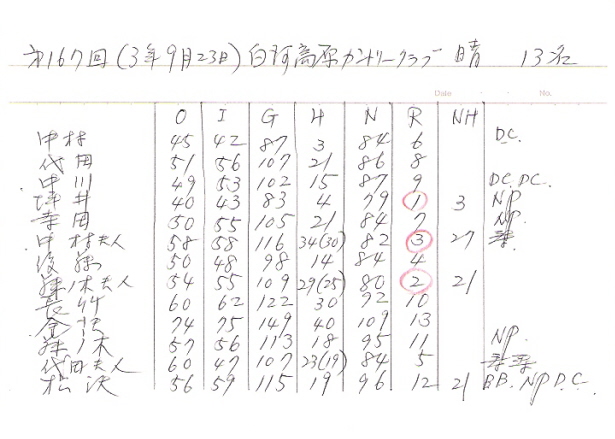 第167回(3年9月23日)白河高原カントリークラブ 晴 13名
Date No.
O I G H N R NH
中村 45 42 87 3 84 6 D.C.
代田 51 56 107 21 86 8
中川 49 53 102 15 87 9 D.C. D.C.
坪井 40 43 83 4 79 1 3 NP
寺田 50 55 105 21 84 7 NP
中村夫人 58 58 116 34(30) 82 3 27
後藤 50 48 98 14 84 4
鈴木夫人 54 55 109 29(25) 80 2 21
長竹 60 62 122 30 92 10
金沢 74 75 149 40 109 13
鈴木 57 56 113 18 95 11 NP
代田夫人 60 47 107 23(19) 84 5
松沢 56 59 115 19 96 12 21 BB. NP D.C.